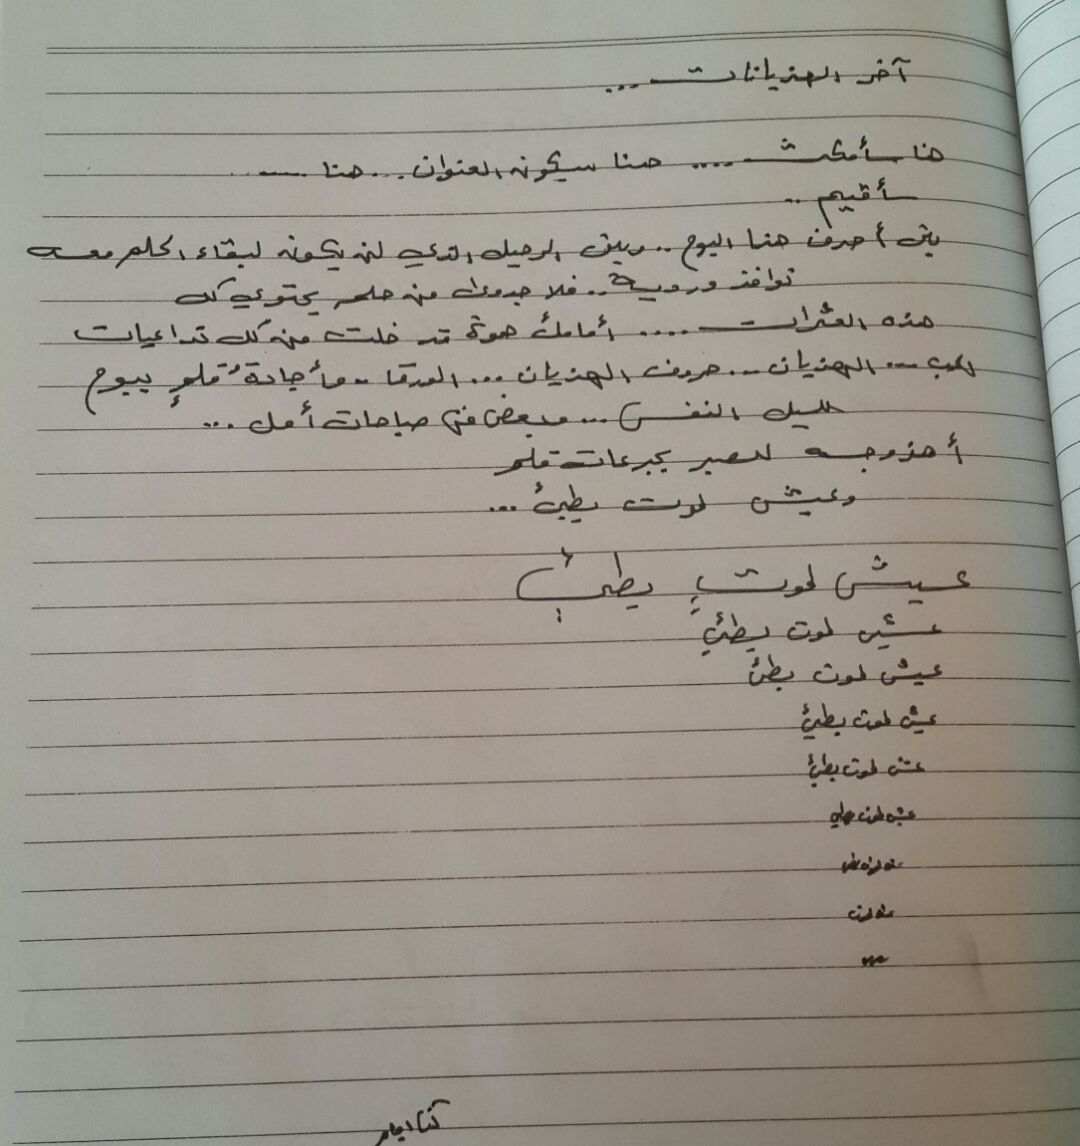 آخر الهذيانات ...
هنا سأمكث .... هنا سيكون العنوان ... هنا ....
سأقيم ..
بين أحرف هنا اليوم .. وبين الرحيل الذي لن يكون لبقاء الحلم معه
نوافذ وردية .. فلا جدوى من حلم يحتوي كل
هذه العثرات .... أمامك هوة قد خلت من كل تداعيات
الحب ... الهذيان ... حروف الهذيان ...
لليل النفس ... وبعض من صباحات أمل ...
أهزوجه للصبر بجرعات قلم
وعيش لموت بطيئ ...
عيش لموتٍ بطيئ
عيش لموت بطيئ
عيش لموت بطئ
عيش لموت بطيئ
عيش لموت بطيئ
عيش لموت